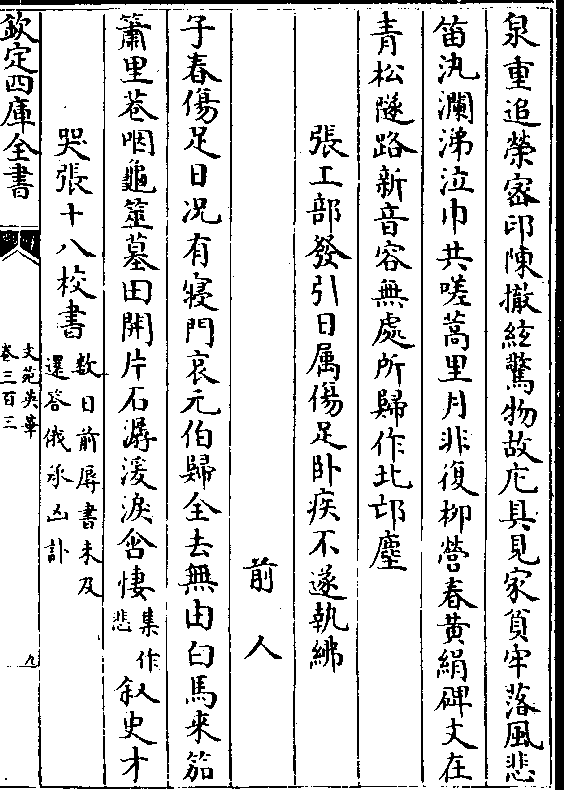 泉重追榮密印陳撤絃驚物故庀具見家貧牢落風悲
笛汍瀾涕泣巾共嗟蒿里月非復柳營春黃絹碑文在
青松隧路新音容無處所歸作北邙塵
張工部發引日属傷足卧疾不遂執紼
前人
子春傷足日况有寢門哀元伯歸全去無由白馬來笳
簫里巷咽龜筮墓田開片石潺湲淚含悽集作悲叙史才
哭張十八校書數日前辱書未及還答俄承凶訃
欽定四庫全書
文苑英華
卷三百三
九